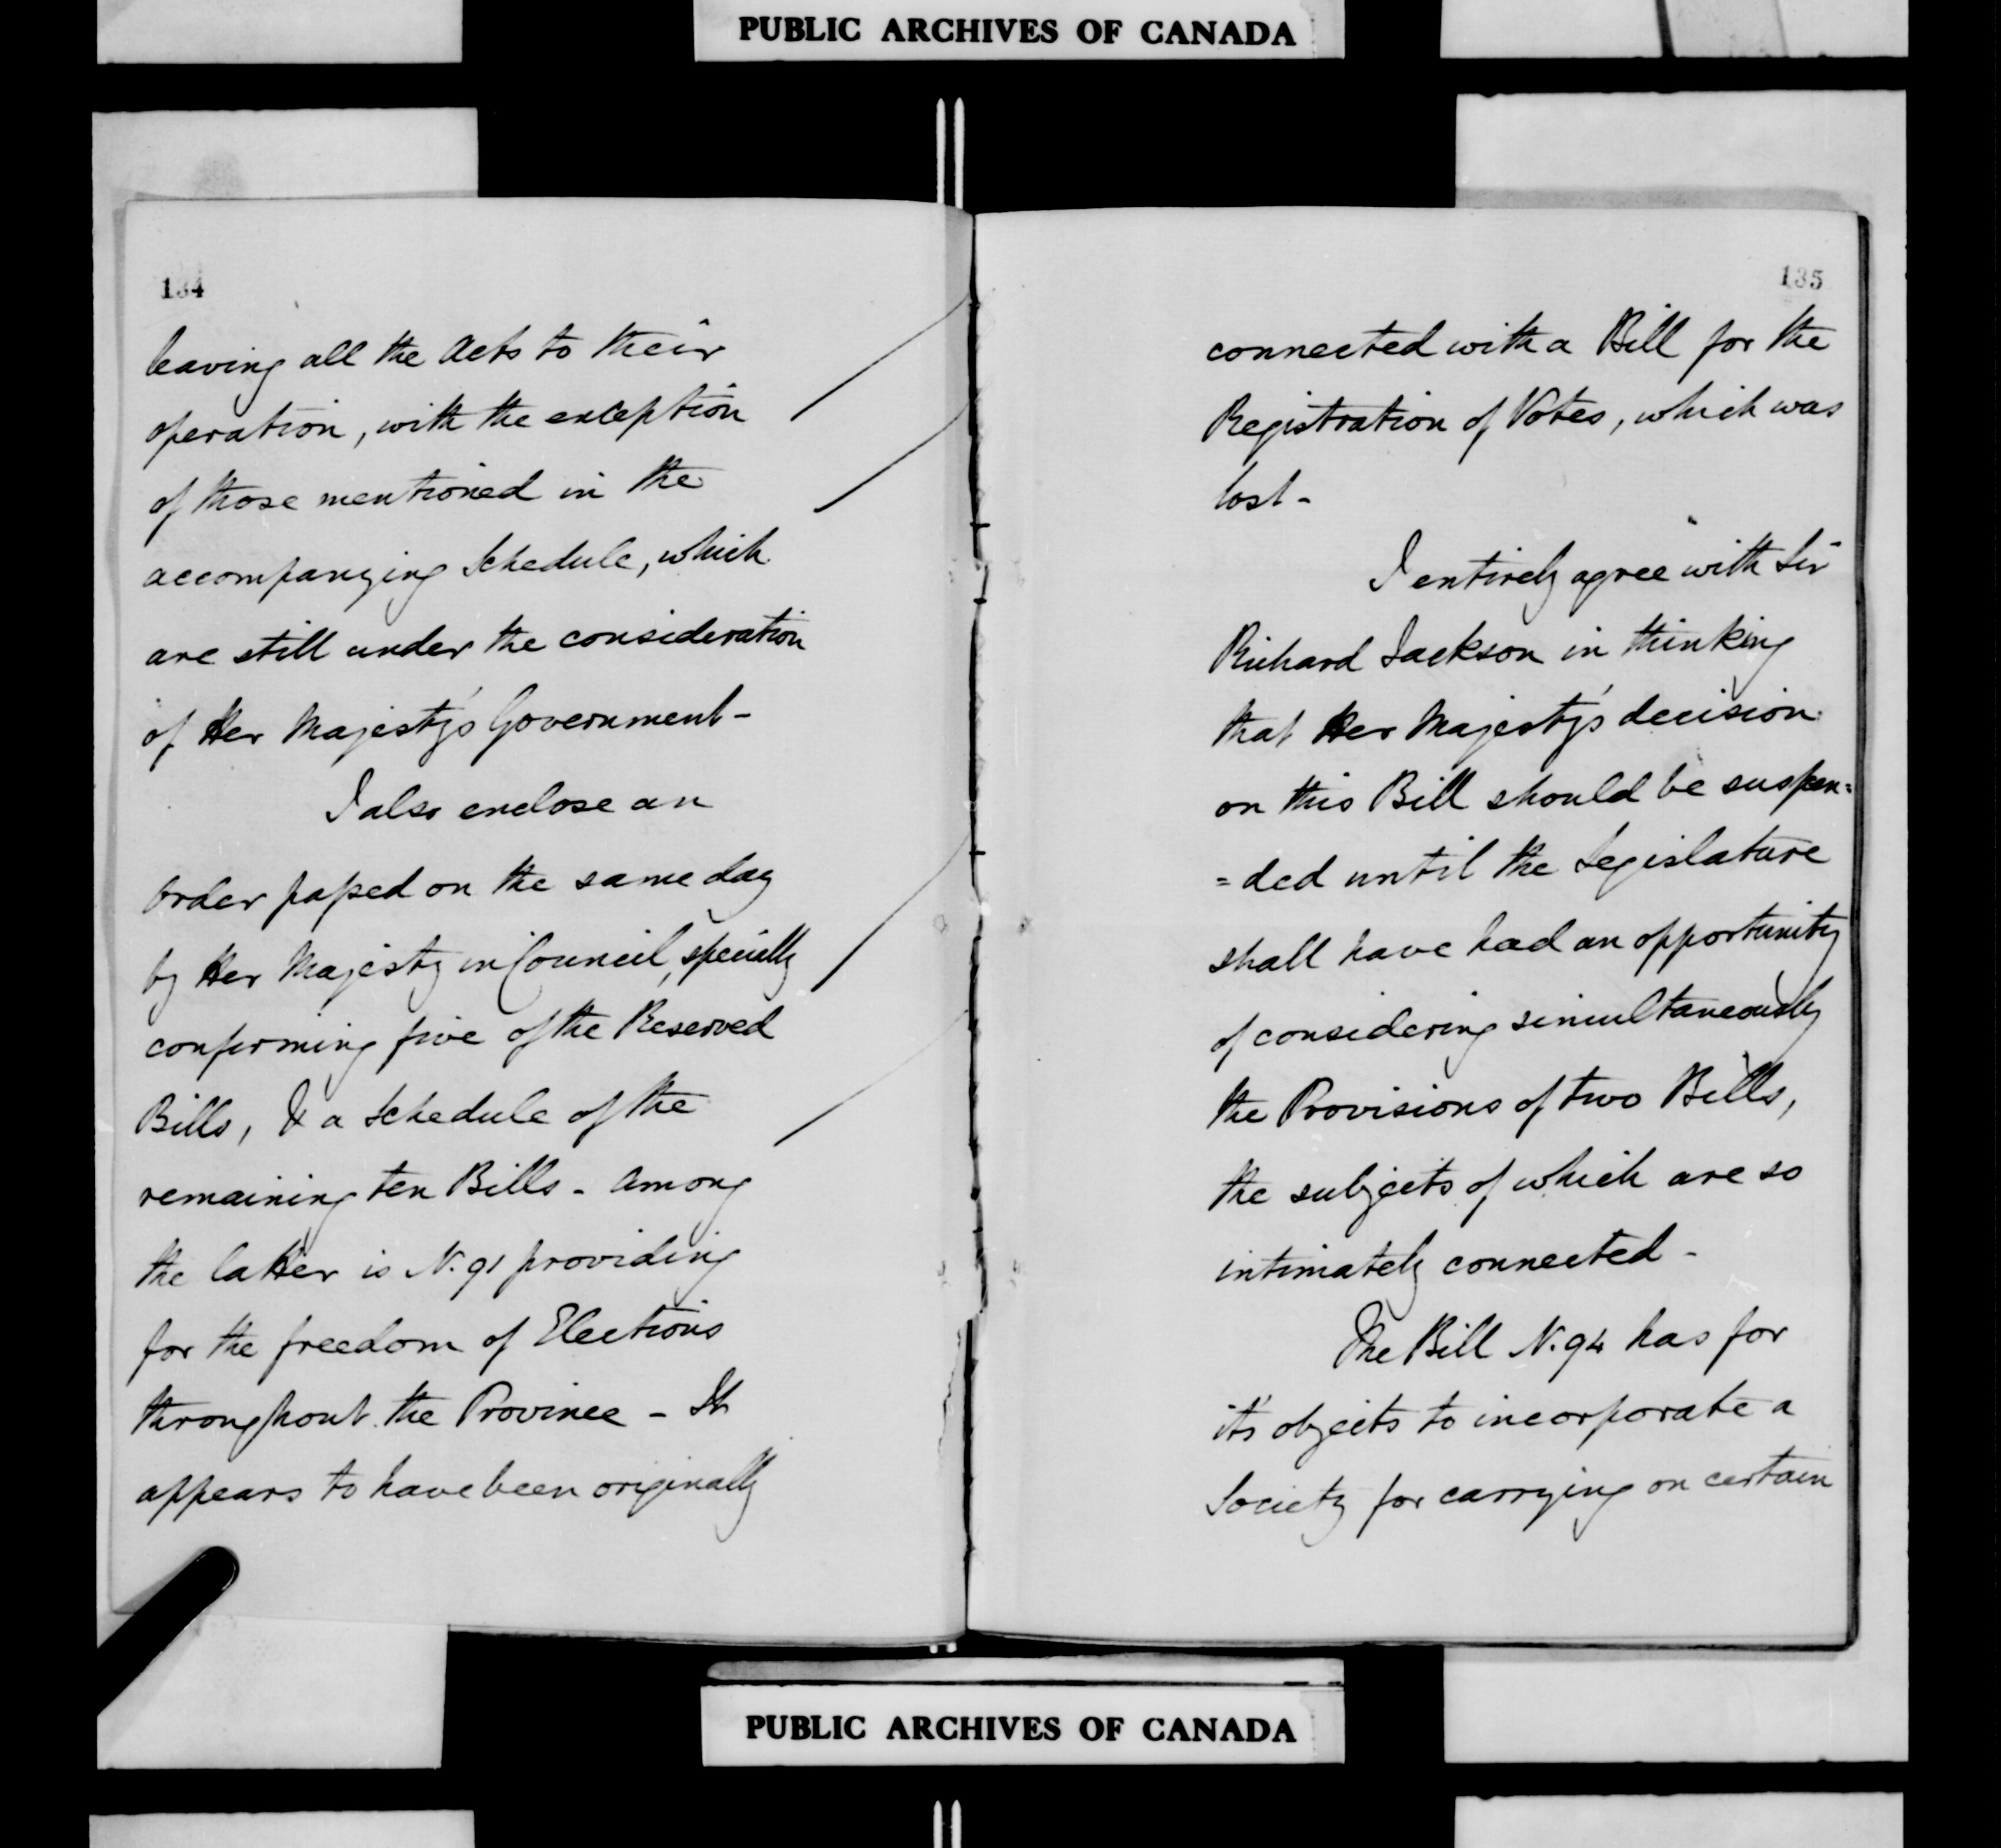 PUBLIC ARCHIVES OF CANADA
134
leaving all the Acts to their
operation, with the exception
of those mentioned in the
accompanying Schedule, which
are still under the consideration
of Her Majesty's Government-
I also enclose an
order passed on the same day
by Her Majesty in Council, specially
confirming five of the Reserved
Bills, & a Schedule of the
remaining ten Bills - Among
the latter is N. 91 providing
for the freedom of Elections
throughout the Province - It
appears to have been originally
135
connected with a Bill for the
Registration of Votes, which was
lost -
I entirely agree with Sir
Richard Jackson in thinking
that Her Majesty's decision
on this Bill should be suspen=
=ded until the Legislature
shall have had an opportunity
of considering simultaneously
the Provisions of two Bills,
the subjects of which are so
intimately connected -
The Bill N. 94 has for
it's objects to incorporate a
Society for carrying on certain
PUBLIC ARCHIVES OF CANADA